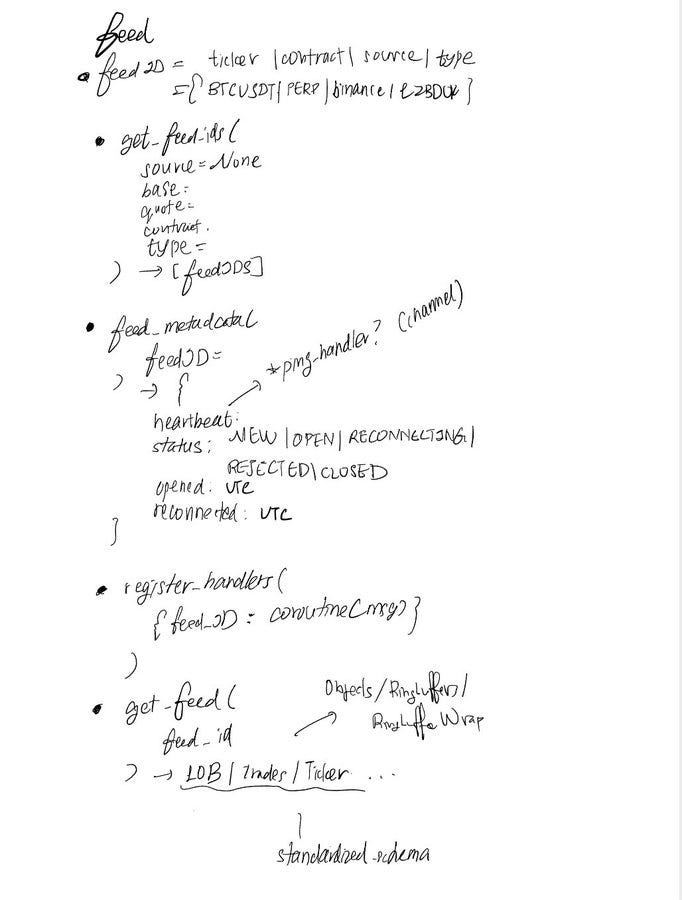 feed
• feedID = ticker | contract | source | type
={ BTCUSDT | PERP | binance | L2BDUK }
• get_feed_ids(
source = None
base =
quote =
contract.
type =
) → [feedIDS]
• feed_metadata(
feedID =
) → {
*ping-handler? (channel)
heartbeat:
status: NEW | OPEN | RECONNECTING |
REJECTED | CLOSED
opened: UTC
reconnected: UTC
}
• register_handlers(
{ feed_ID : coroutine(msg) }
)
• get_feed(
feed_id
Objects / Ringbuffers /
Wrap
) → LOB | Trades / Ticker ...
standardized_schema